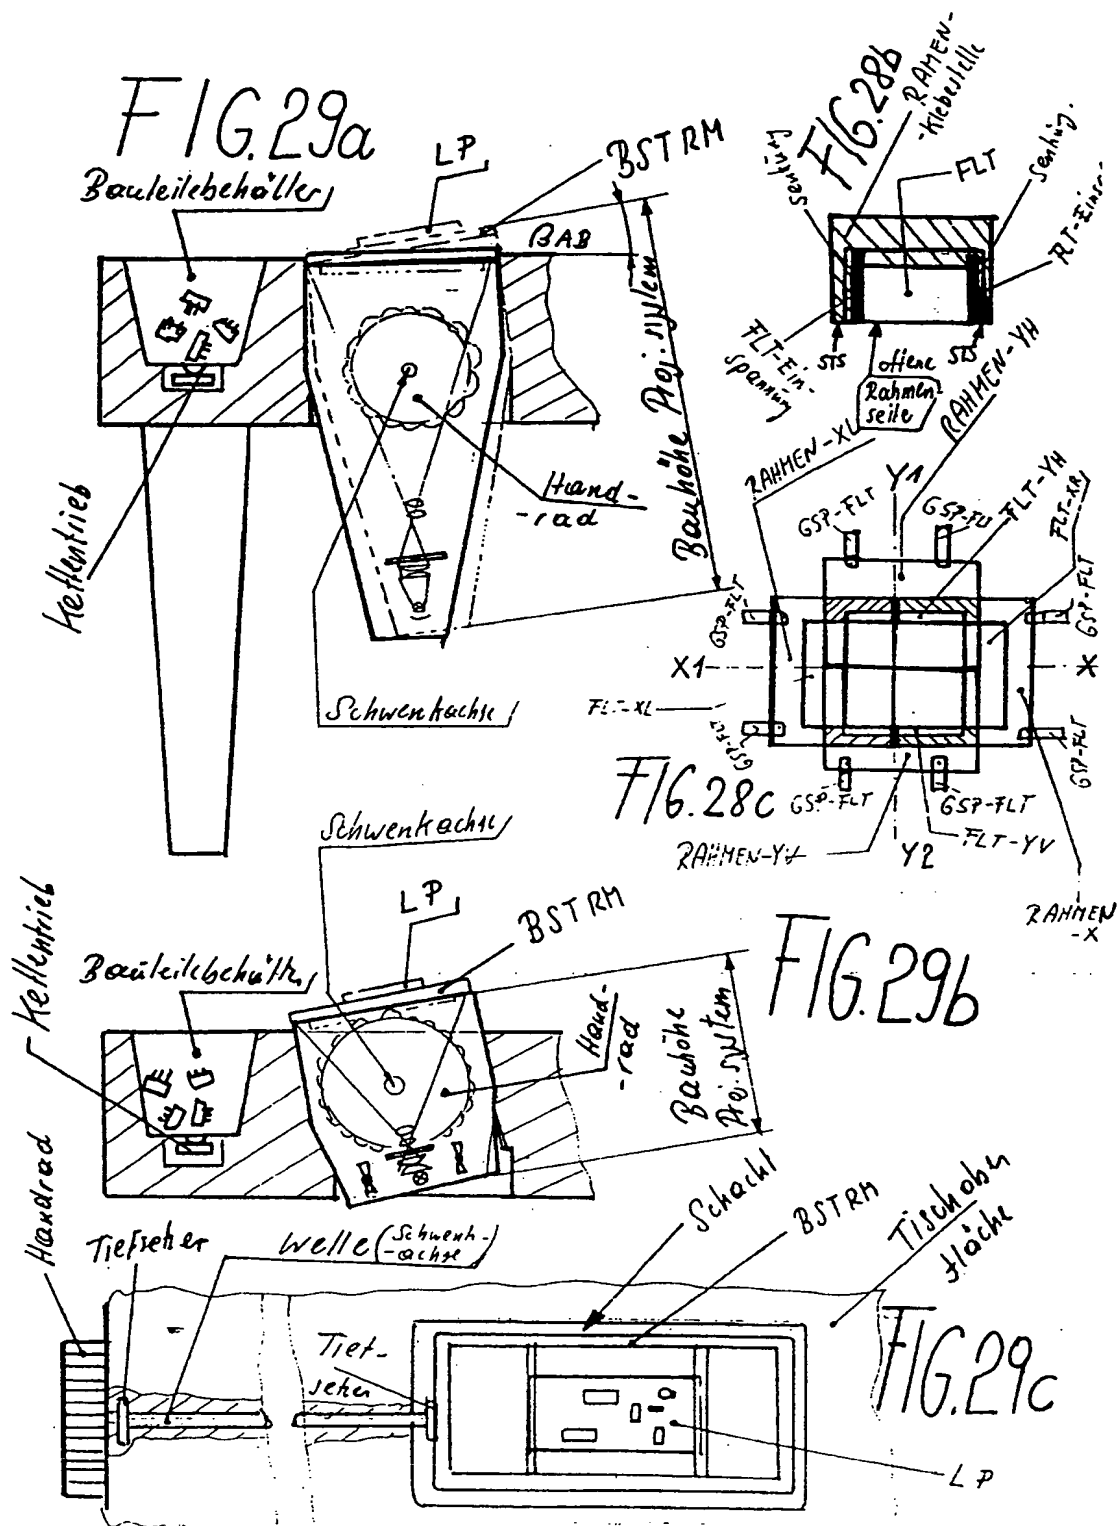 FIG.29a
Bauteilebehälter
LP
BSTRM
BAB
Bauhöhe Proj.system
Hand-
-rad
Kettentrieb
Schwenkachse
FIG.28b
RAMEN-
-Klebestelle
Senkung
FLT
Senkung.
RT-Einsp
FLT-Ein-
spannung
STS
STS
offene
Rahmen
seite
RAHMEN-YH
RAHMEN-XL
Y1
GSP-FLT
GSP-FLT
FLT-YH
FLT-XR
GSP-FLT
GSP-FLT
X1
X
FLT-XL
GSP-FLT
GSP-FLT
FIG.28c
GSP-FLT
GSP-FLT
FLT-YV
RAHMEN-YV
Y2
RAHMEN
-X
Schwenkachse
LP
BSTRM
Kettentrieb
Bauteilebehälter
Hand-
-rad
Bauhöhe
Proj.system
FIG.29b
Handrad
Tiefseher
Welle (Schwenk-
-achse)
Schacht
BSTRM
Tischober
fläche
Tief-
seher
FIG.29c
LP